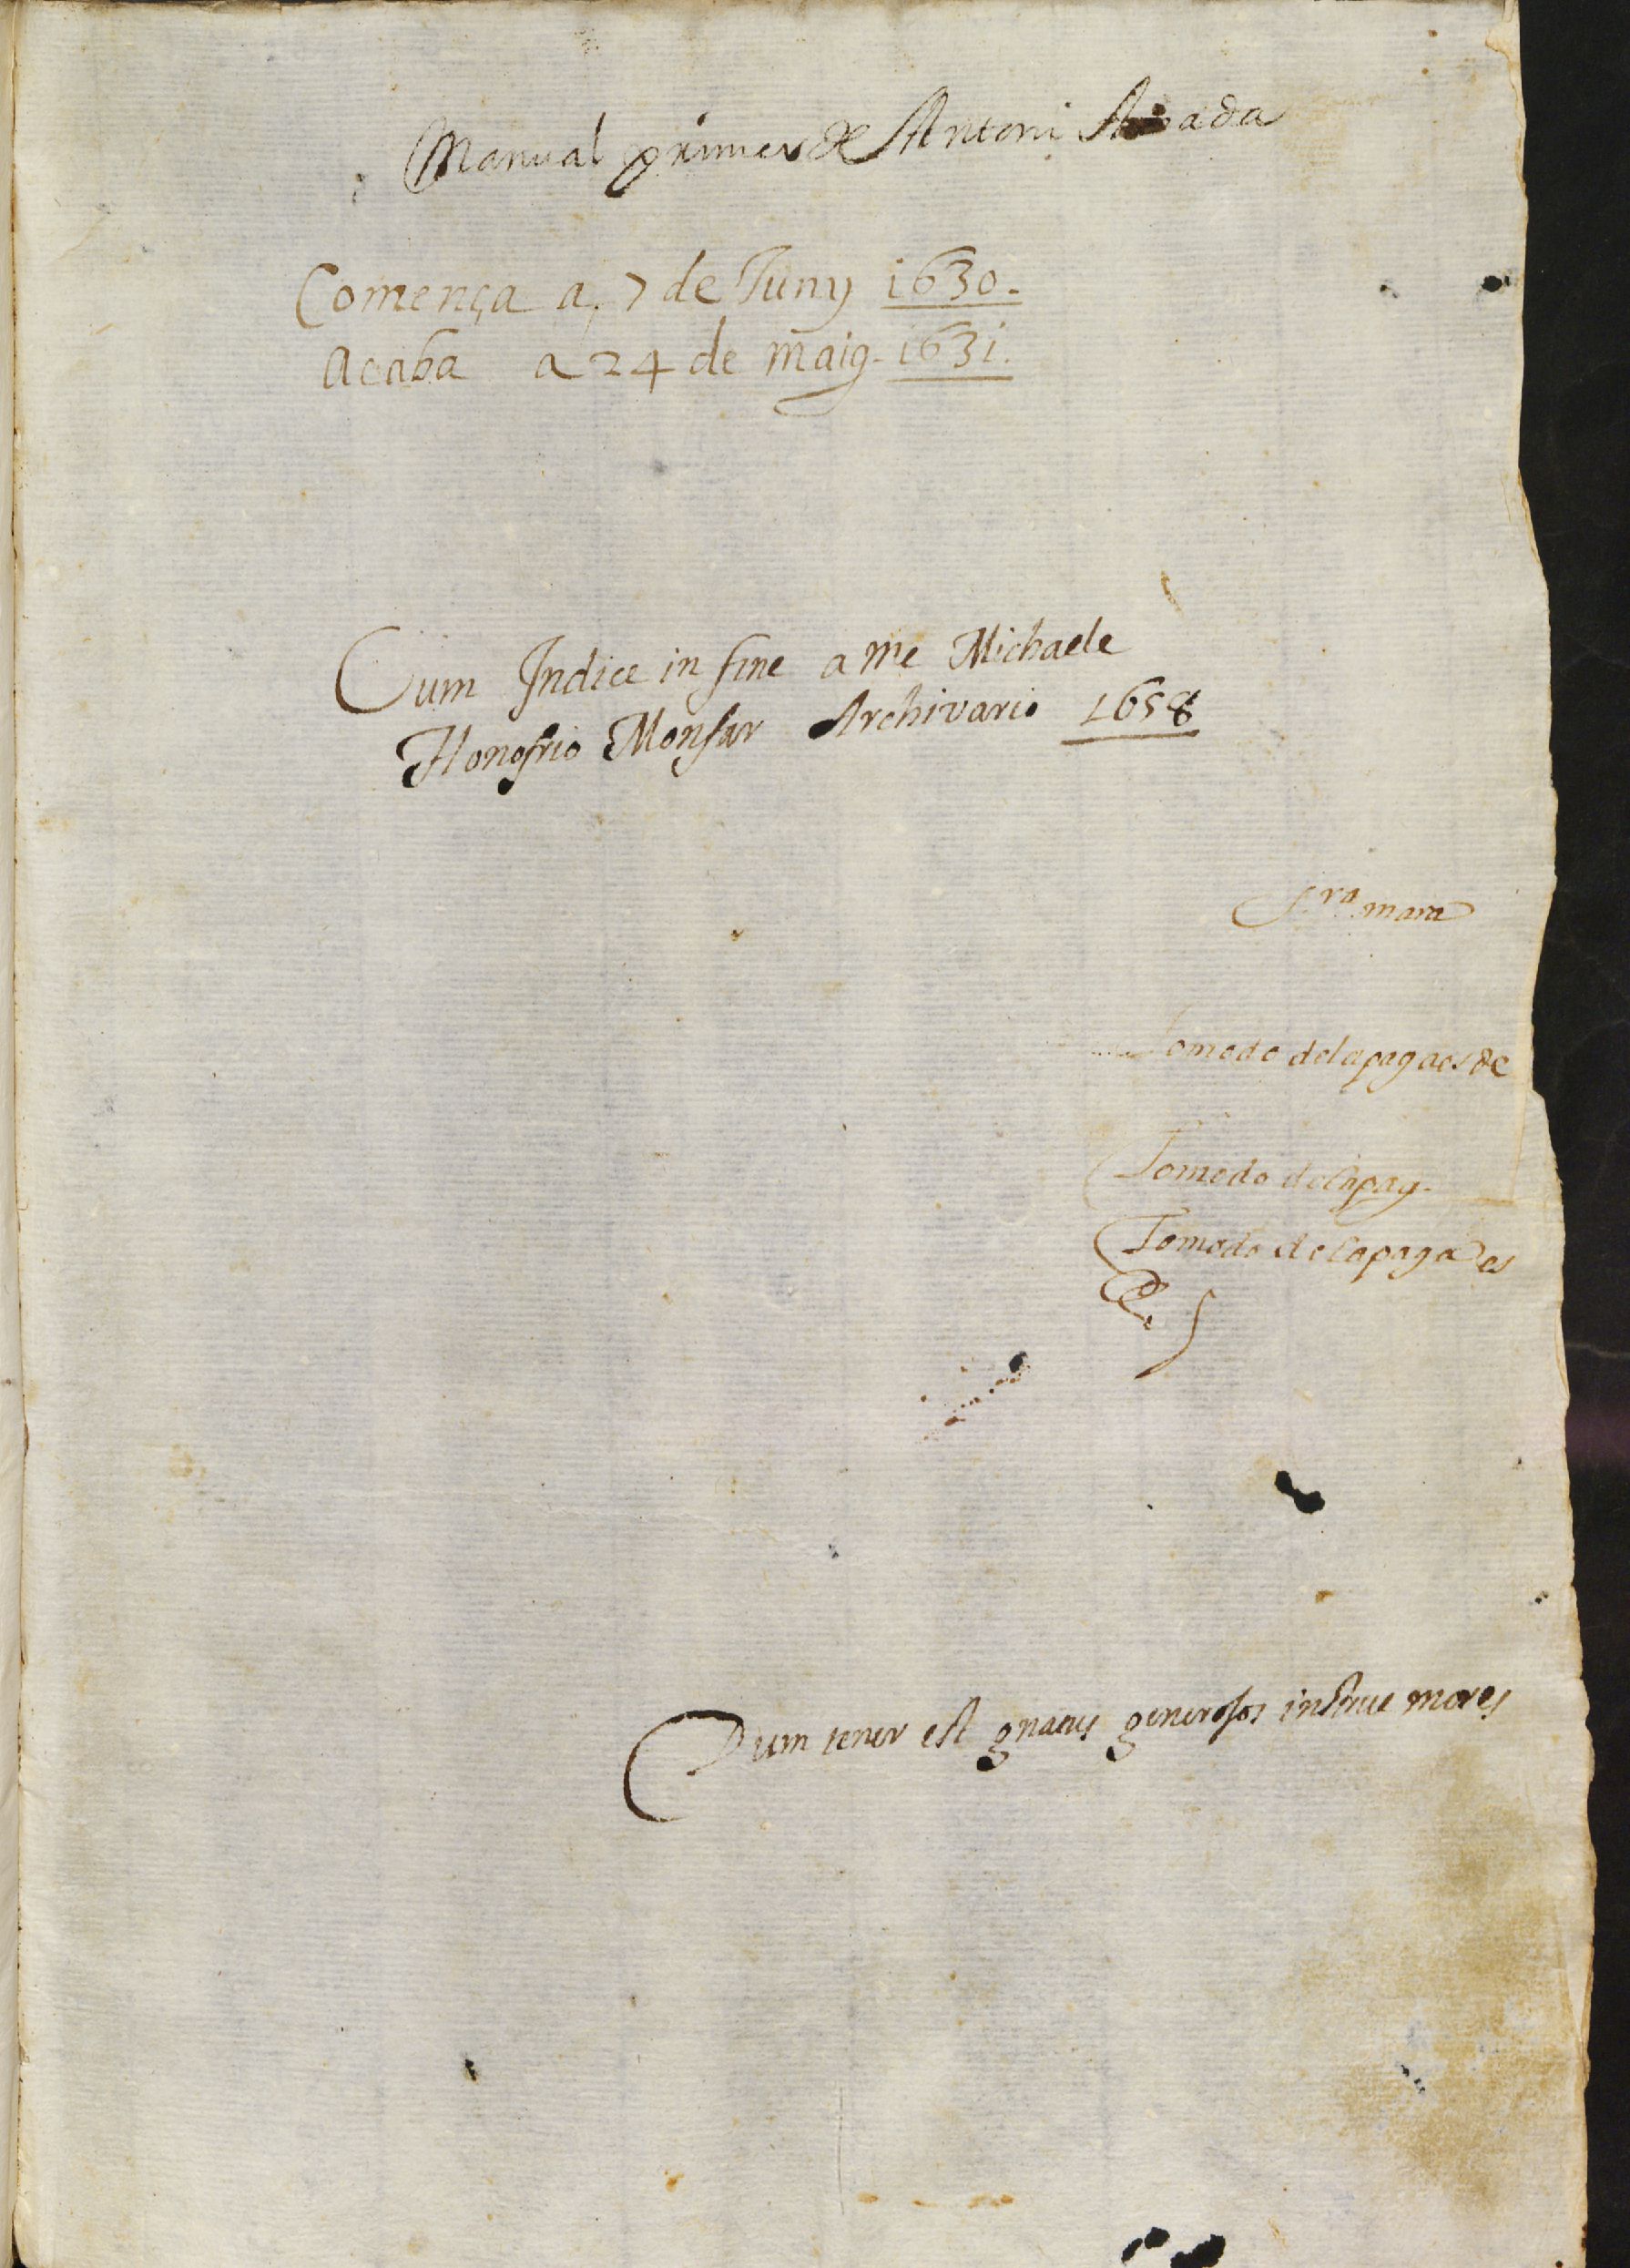 Manual primer de Antoni
Comença a 7 de Juny 1630.
Acaba a 24 de maig. 1631.
Cum Indice in fine a me Michaele
Honofrio Monfar Archivario 1658
Sra mara
omodo de la paga es de
Lo modo de la pag.
Lo modo de la paga es
Dum tener est gnatus generosos instrue mores